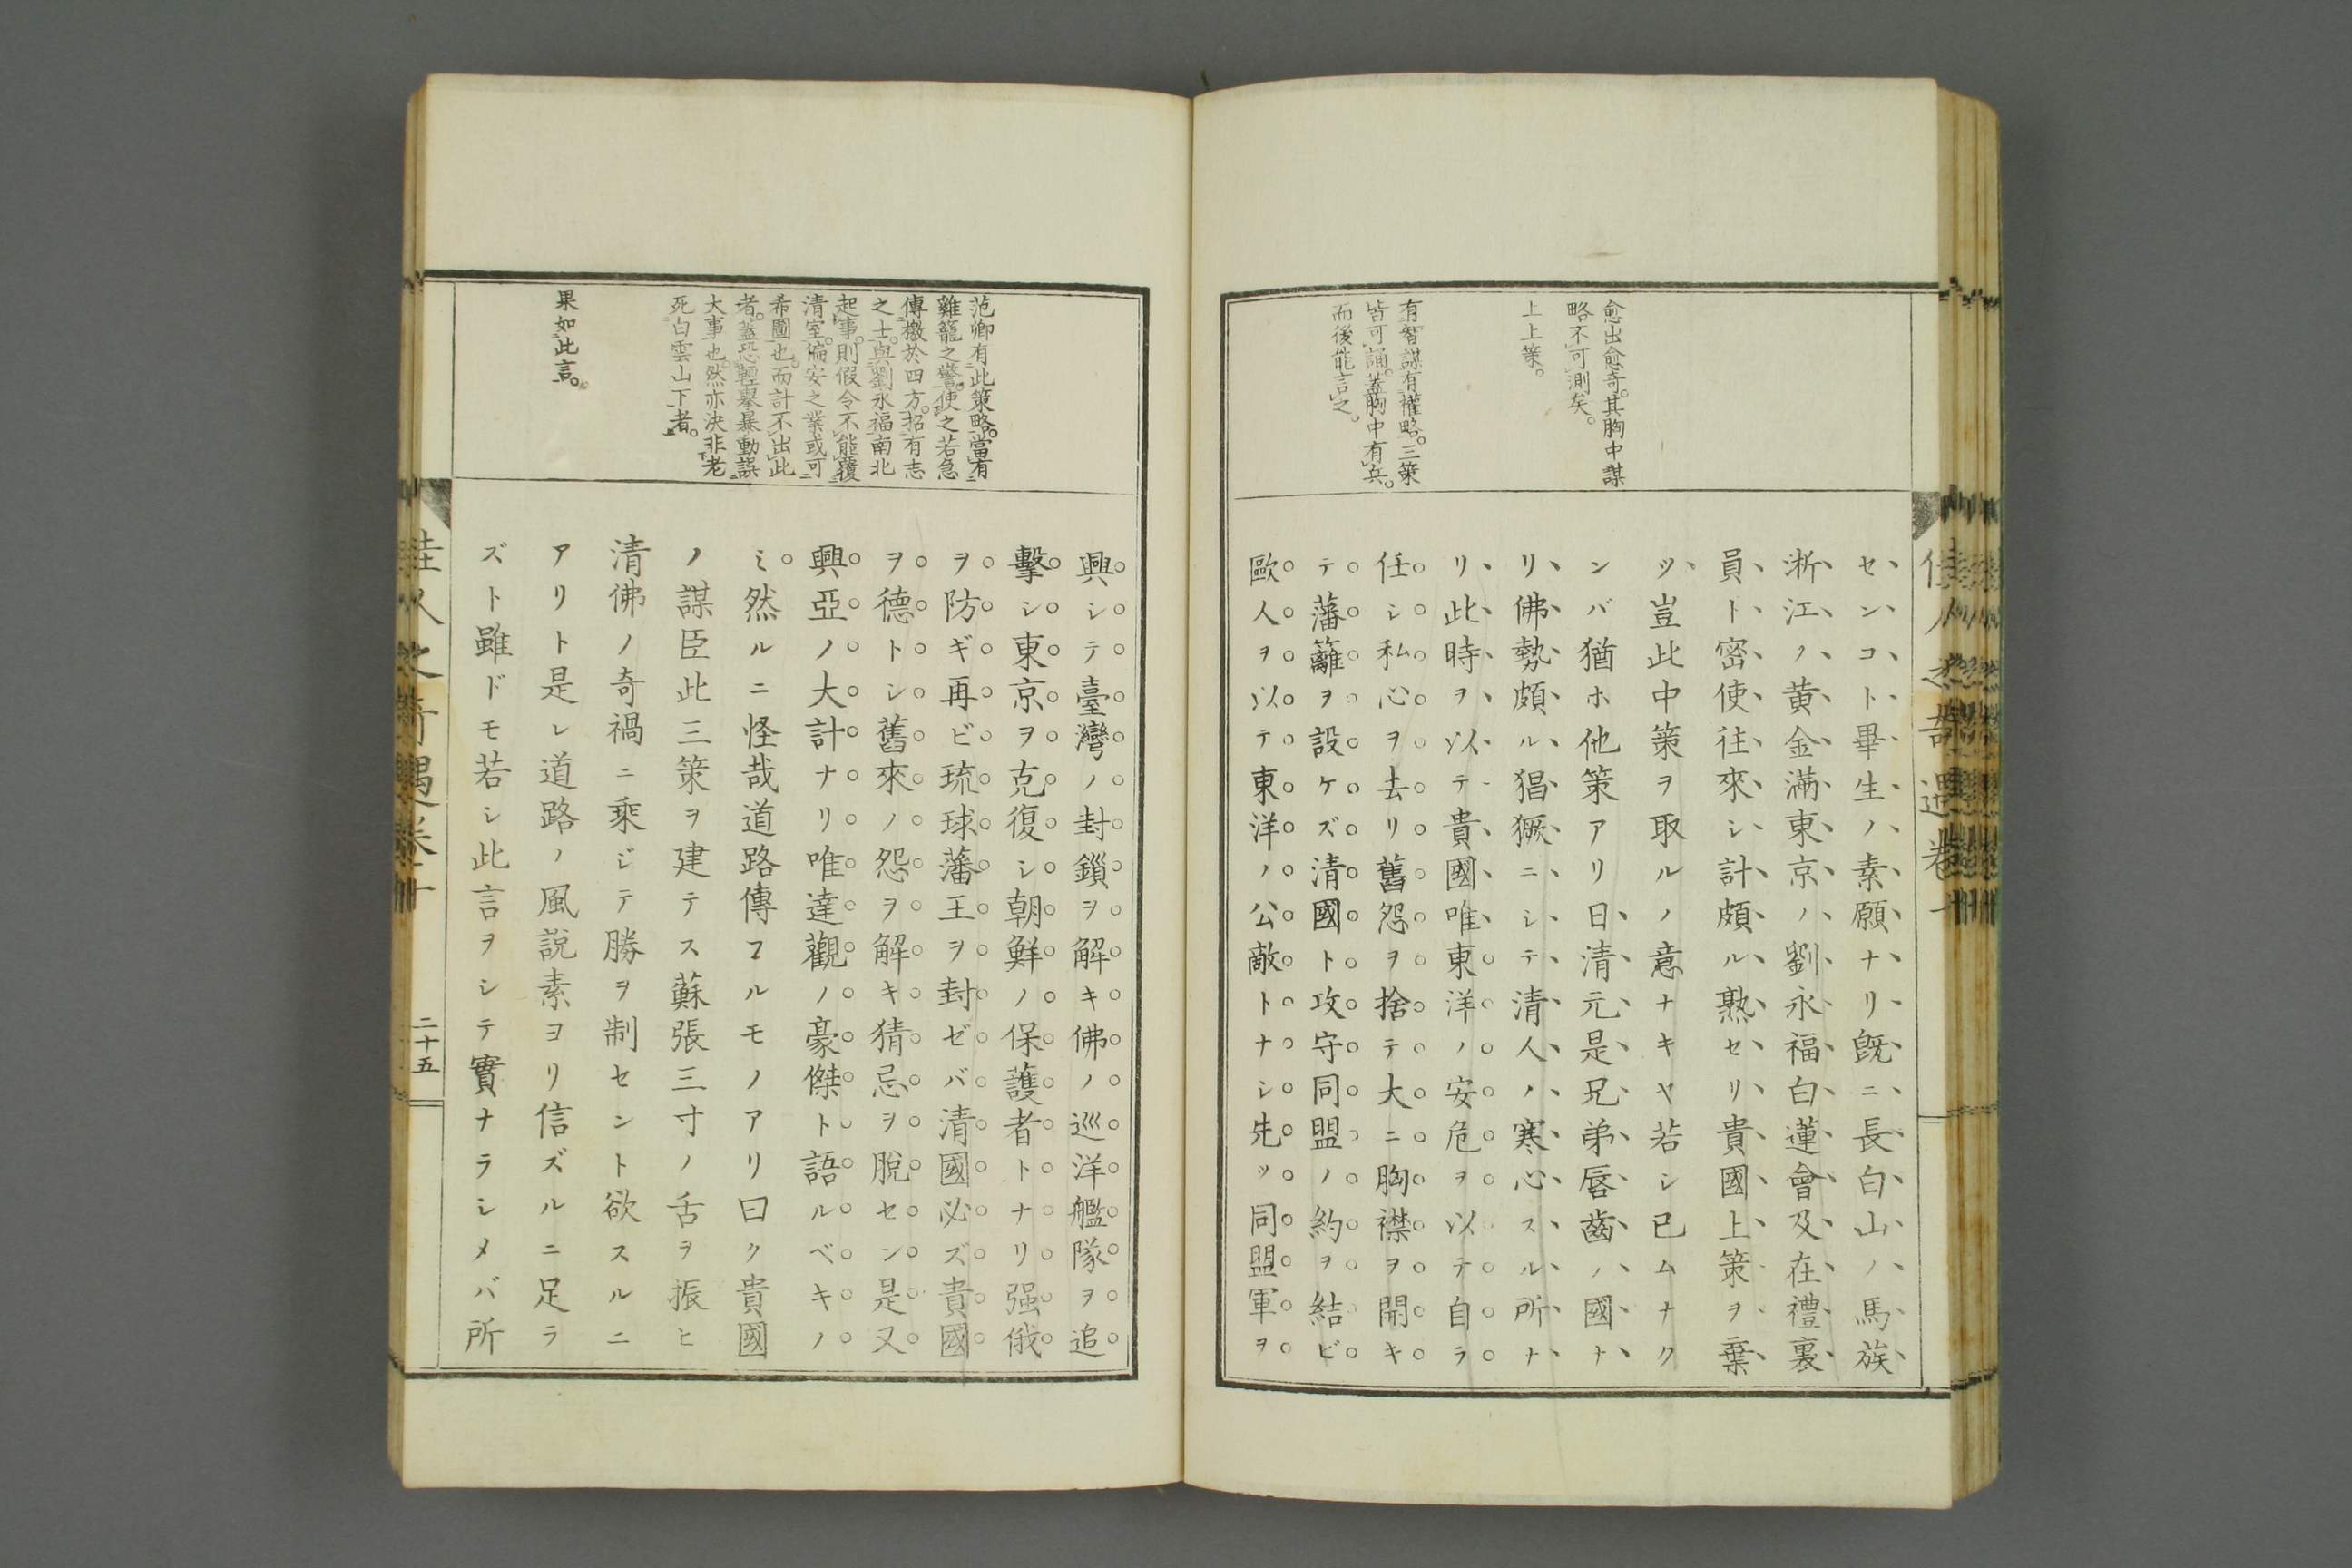 愈出愈奇。其胸中謀
略不可測矣。
上上策。
有智謀有權略。三策
皆可誦。蓋胸中有兵。
而後能言之。
センコト畢生ノ素願ナリ既ニ長白山ノ馬族
淅江ノ黄金滿東京ノ劉永福白蓮會及在禮裏
員ト密使往來シ計頗ル熟セリ貴國上策ヲ棄
ツ豈此中策ヲ取ルノ意ナキヤ若シ已ムナク
ンバ猶ホ他策アリ日清元是兄弟唇齒ノ國ナ
リ佛勢頗ル猖獗ニシテ清人ノ寒心スル所ナ
リ此時ヲ以テ貴國唯東洋ノ安危ヲ以テ自ラ
任シ私心ヲ去リ舊怨ヲ捨テ大ニ胸襟ヲ開キ
テ藩籬ヲ設ケズ清國ト攻守同盟ノ約ヲ結ビ
歐人ヲ以テ東洋ノ公敵トナシ先ッ同盟軍ヲ
范卿有此策略。當有
雞籠之警。使之若急
傳檄於四方。招有志
之士。與劉永福南北
起事。則假令不能覆
清室。偏安之業或可
希圖也。而計不出此
者。蓋恐輕擧暴動誤
大事也。然亦決非老
死白雲山下者。
果如此言。
興シテ臺灣ノ封鎖ヲ解キ佛ノ巡洋艦隊ヲ追
擊シ東京ヲ克復シ朝鮮ノ保護者トナリ强俄
ヲ防ギ再ビ琉球藩王ヲ封ゼバ清國必ズ貴國
ヲ德トシ舊來ノ怨ヲ解キ猜忌ヲ脫セン是又
興亞ノ大計ナリ唯達觀ノ豪傑ト語ルベキノ
ミ然ルニ怪哉道路傳フルモノアリ曰ク貴國
ノ謀臣此三策ヲ建テス蘇張三寸ノ舌ヲ振ヒ
清佛ノ奇禍ニ乘ジテ勝ヲ制セント欲スルニ
アリト是レ道路ノ風說素ヨリ信ズルニ足ラ
ズト雖ドモ若シ此言ヲシテ實ナラシメバ所
佳人之奇遇卷十
二十五